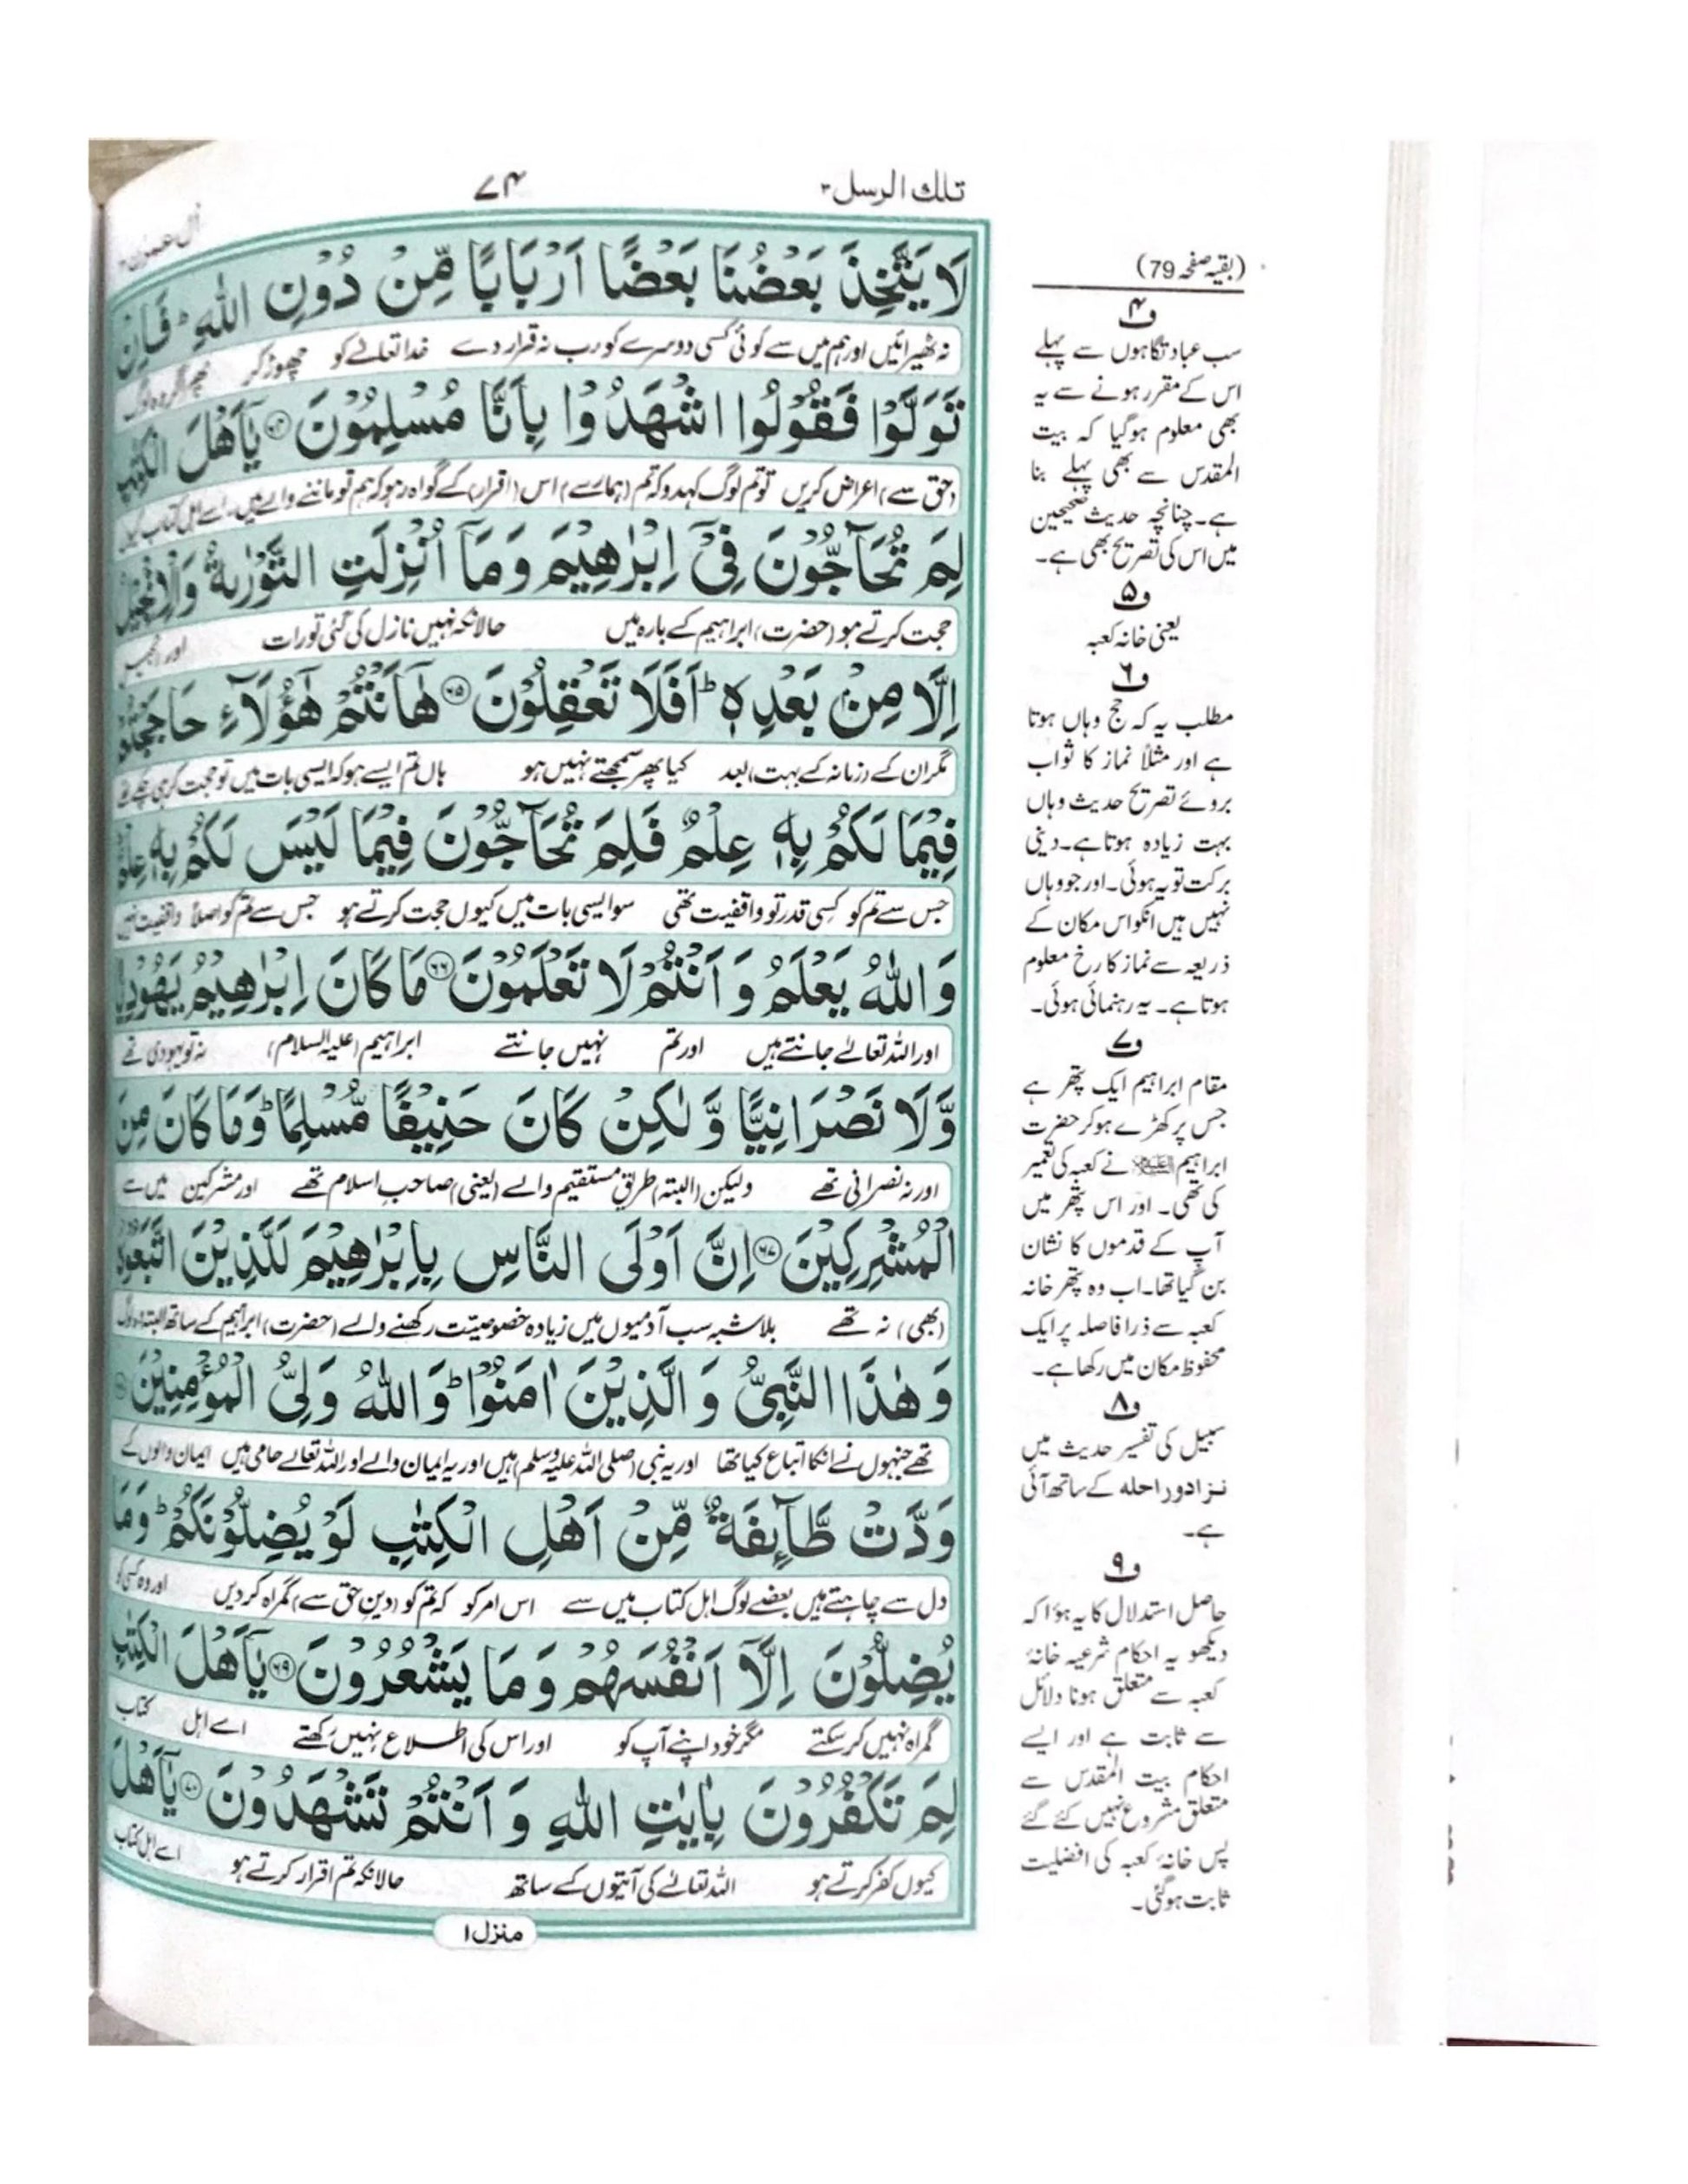 تلك الرسل ۳
۷۴
اٰل عمرٰن ۳
لَا يَتَّخِذَ بَعْضُنَا بَعْضًا اَرْبَابًا مِّنْ دُوْنِ اللّٰهِ ؕ فَاِنْ
نہ ٹھیرائیں اور ہم میں سے کوئی کسی دوسرے کو رب نہ قرار دے خدا تعالےٰ کو چھوڑ کر
تَوَلَّوْا فَقُوْلُوا اشْهَدُوْا بِاَنَّا مُسْلِمُوْنَ ۶۴ يٰۤاَهْلَ الْكِتٰبِ
(حق سے) اعراض کریں تو تم لوگ کہدو کہ تم (ہمارے) اس (اقرار) کے گواہ رہو کہ ہم تو ماننے والے ہیں۔ اے اہل کتاب
لِمَ تُحَآجُّوْنَ فِىْۤ اِبْرٰهِيْمَ وَمَاۤ اُنْزِلَتِ التَّوْرٰىةُ وَالْاِنْجِيْلُ
حجت کرتے ہو (حضرت) ابراہیم کے بارہ میں حالانکہ نہیں نازل کی گئی تورات اور انجیل
اِلَّا مِنْۢ بَعْدِهٖ ؕ اَفَلَا تَعْقِلُوْنَ ۶۵ هٰۤاَنْتُمْ هٰٓؤُلَآءِ حَاجَجْتُمْ
مگر ان کے (زمانہ کے بہت) بعد کیا پھر سمجھتے نہیں ہو ہاں تم ایسے ہو کہ ایسی بات میں تو حجت کر ہی چکے تھے
فِيْمَا لَكُمْ بِهٖ عِلْمٌ فَلِمَ تُحَآجُّوْنَ فِيْمَا لَيْسَ لَكُمْ بِهٖ عِلْمٌ
جس سے تم کو کسی قدر تو واقفیت تھی سو ایسی بات میں کیوں حجت کرتے ہو جس سے تم کو اصلاً واقفیت نہیں
وَاللّٰهُ يَعْلَمُ وَ اَنْتُمْ لَا تَعْلَمُوْنَ ۶۶ مَا كَانَ اِبْرٰهِيْمُ يَهُوْدِيًّا
اور اللہ تعالےٰ جانتے ہیں اور تم نہیں جانتے ابراہیم (علیہ السلام) نہ تو یہودی تھے
وَّلَا نَصْرَانِيًّا وَّلٰكِنْ كَانَ حَنِيْفًا مُّسْلِمًا ؕ وَمَا كَانَ مِنَ
اور نہ نصرانی تھے ولیکن (البتہ) طریق مستقیم والے (یعنی) صاحب اسلام تھے اور مشرکین میں سے
الْمُشْرِكِيْنَ ۶۷ اِنَّ اَوْلَى النَّاسِ بِاِبْرٰهِيْمَ لَلَّذِيْنَ اتَّبَعُوْهُ
(بھی) نہ تھے بلاشبہ سب آدمیوں میں زیادہ خصوصیّت رکھنے والے (حضرت) ابراہیم کے ساتھ البتہ وہ لوگ
وَهٰذَا النَّبِىُّ وَ الَّذِيْنَ اٰمَنُوْا ؕ وَاللّٰهُ وَلِىُّ الْمُؤْمِنِيْنَ
تھے جنہوں نے انکا اتباع کیا تھا اور یہ نبی (صلی اللہ علیہ وسلم) ہیں اور یہ ایمان والے اور اللہ تعالےٰ حامی ہیں ایمان والوں کے
وَدَّتْ طَّآئِفَةٌ مِّنْ اَهْلِ الْكِتٰبِ لَوْ يُضِلُّوْنَكُمْ ؕ وَمَا
دل سے چاہتے ہیں بعضے لوگ اہل کتاب میں سے اس امر کو کہ تم کو (دین حق سے) گمراہ کردیں اور وہ کسی کو
يُضِلُّوْنَ اِلَّاۤ اَنْفُسَهُمْ وَمَا يَشْعُرُوْنَ ۶۹ يٰۤاَهْلَ الْكِتٰبِ
گمراہ نہیں کر سکتے مگر خود اپنے آپ کو اور اس کی اطلاع نہیں رکھتے اے اہل کتاب
لِمَ تَكْفُرُوْنَ بِاٰيٰتِ اللّٰهِ وَ اَنْتُمْ تَشْهَدُوْنَ ۷۰ يٰۤاَهْلَ
کیوں کفر کرتے ہو اللہ تعالےٰ کی آیتوں کے ساتھ حالانکہ تم اقرار کرتے ہو اے اہل کتاب
منزل ۱
(بقیہ صفحہ 79)
ف۴
سب عبادتگاہوں سے پہلے
اس کے مقرر ہونے سے یہ
بھی معلوم ہوگیا کہ بیت
المقدس سے بھی پہلے بنا
ہے۔ چنانچہ حدیث صحیحین
میں اس کی تصریح بھی ہے۔
ف۵
یعنی خانہ کعبہ
ف۶
مطلب یہ کہ حج وہاں ہوتا
ہے اور مثلاً نماز کا ثواب
بروئے تصریح حدیث وہاں
بہت زیادہ ہوتا ہے۔ دینی
برکت تو یہ ہوئی۔ اور جو وہاں
نہیں ہیں انکو اس مکان کے
ذریعہ سے نماز کا رخ معلوم
ہوتا ہے۔ یہ رہنمائی ہوئی۔
ف۷
مقام ابراہیم ایک پتھر ہے
جس پر کھڑے ہوکر حضرت
ابراہیم علیہ السلام نے کعبہ کی تعمیر
کی تھی۔ اور اس پتھر میں
آپ کے قدموں کا نشان
بن گیا تھا۔ اب وہ پتھر خانہ
کعبہ سے ذرا فاصلہ پر ایک
محفوظ مکان میں رکھا ہے۔
ف۸
سبیل کی تفسیر حدیث میں
زادوراحلہ کے ساتھ آئی
ہے۔
ف۹
حاصل استدلال کا یہ ہوا کہ
دیکھو یہ احکام شرعیہ خانۂ
کعبہ سے متعلق ہونا دلائل
سے ثابت ہے اور ایسے
احکام بیت المقدس سے
متعلق مشروع نہیں کئے گئے
پس خانۂ کعبہ کی افضلیت
ثابت ہوگئی۔